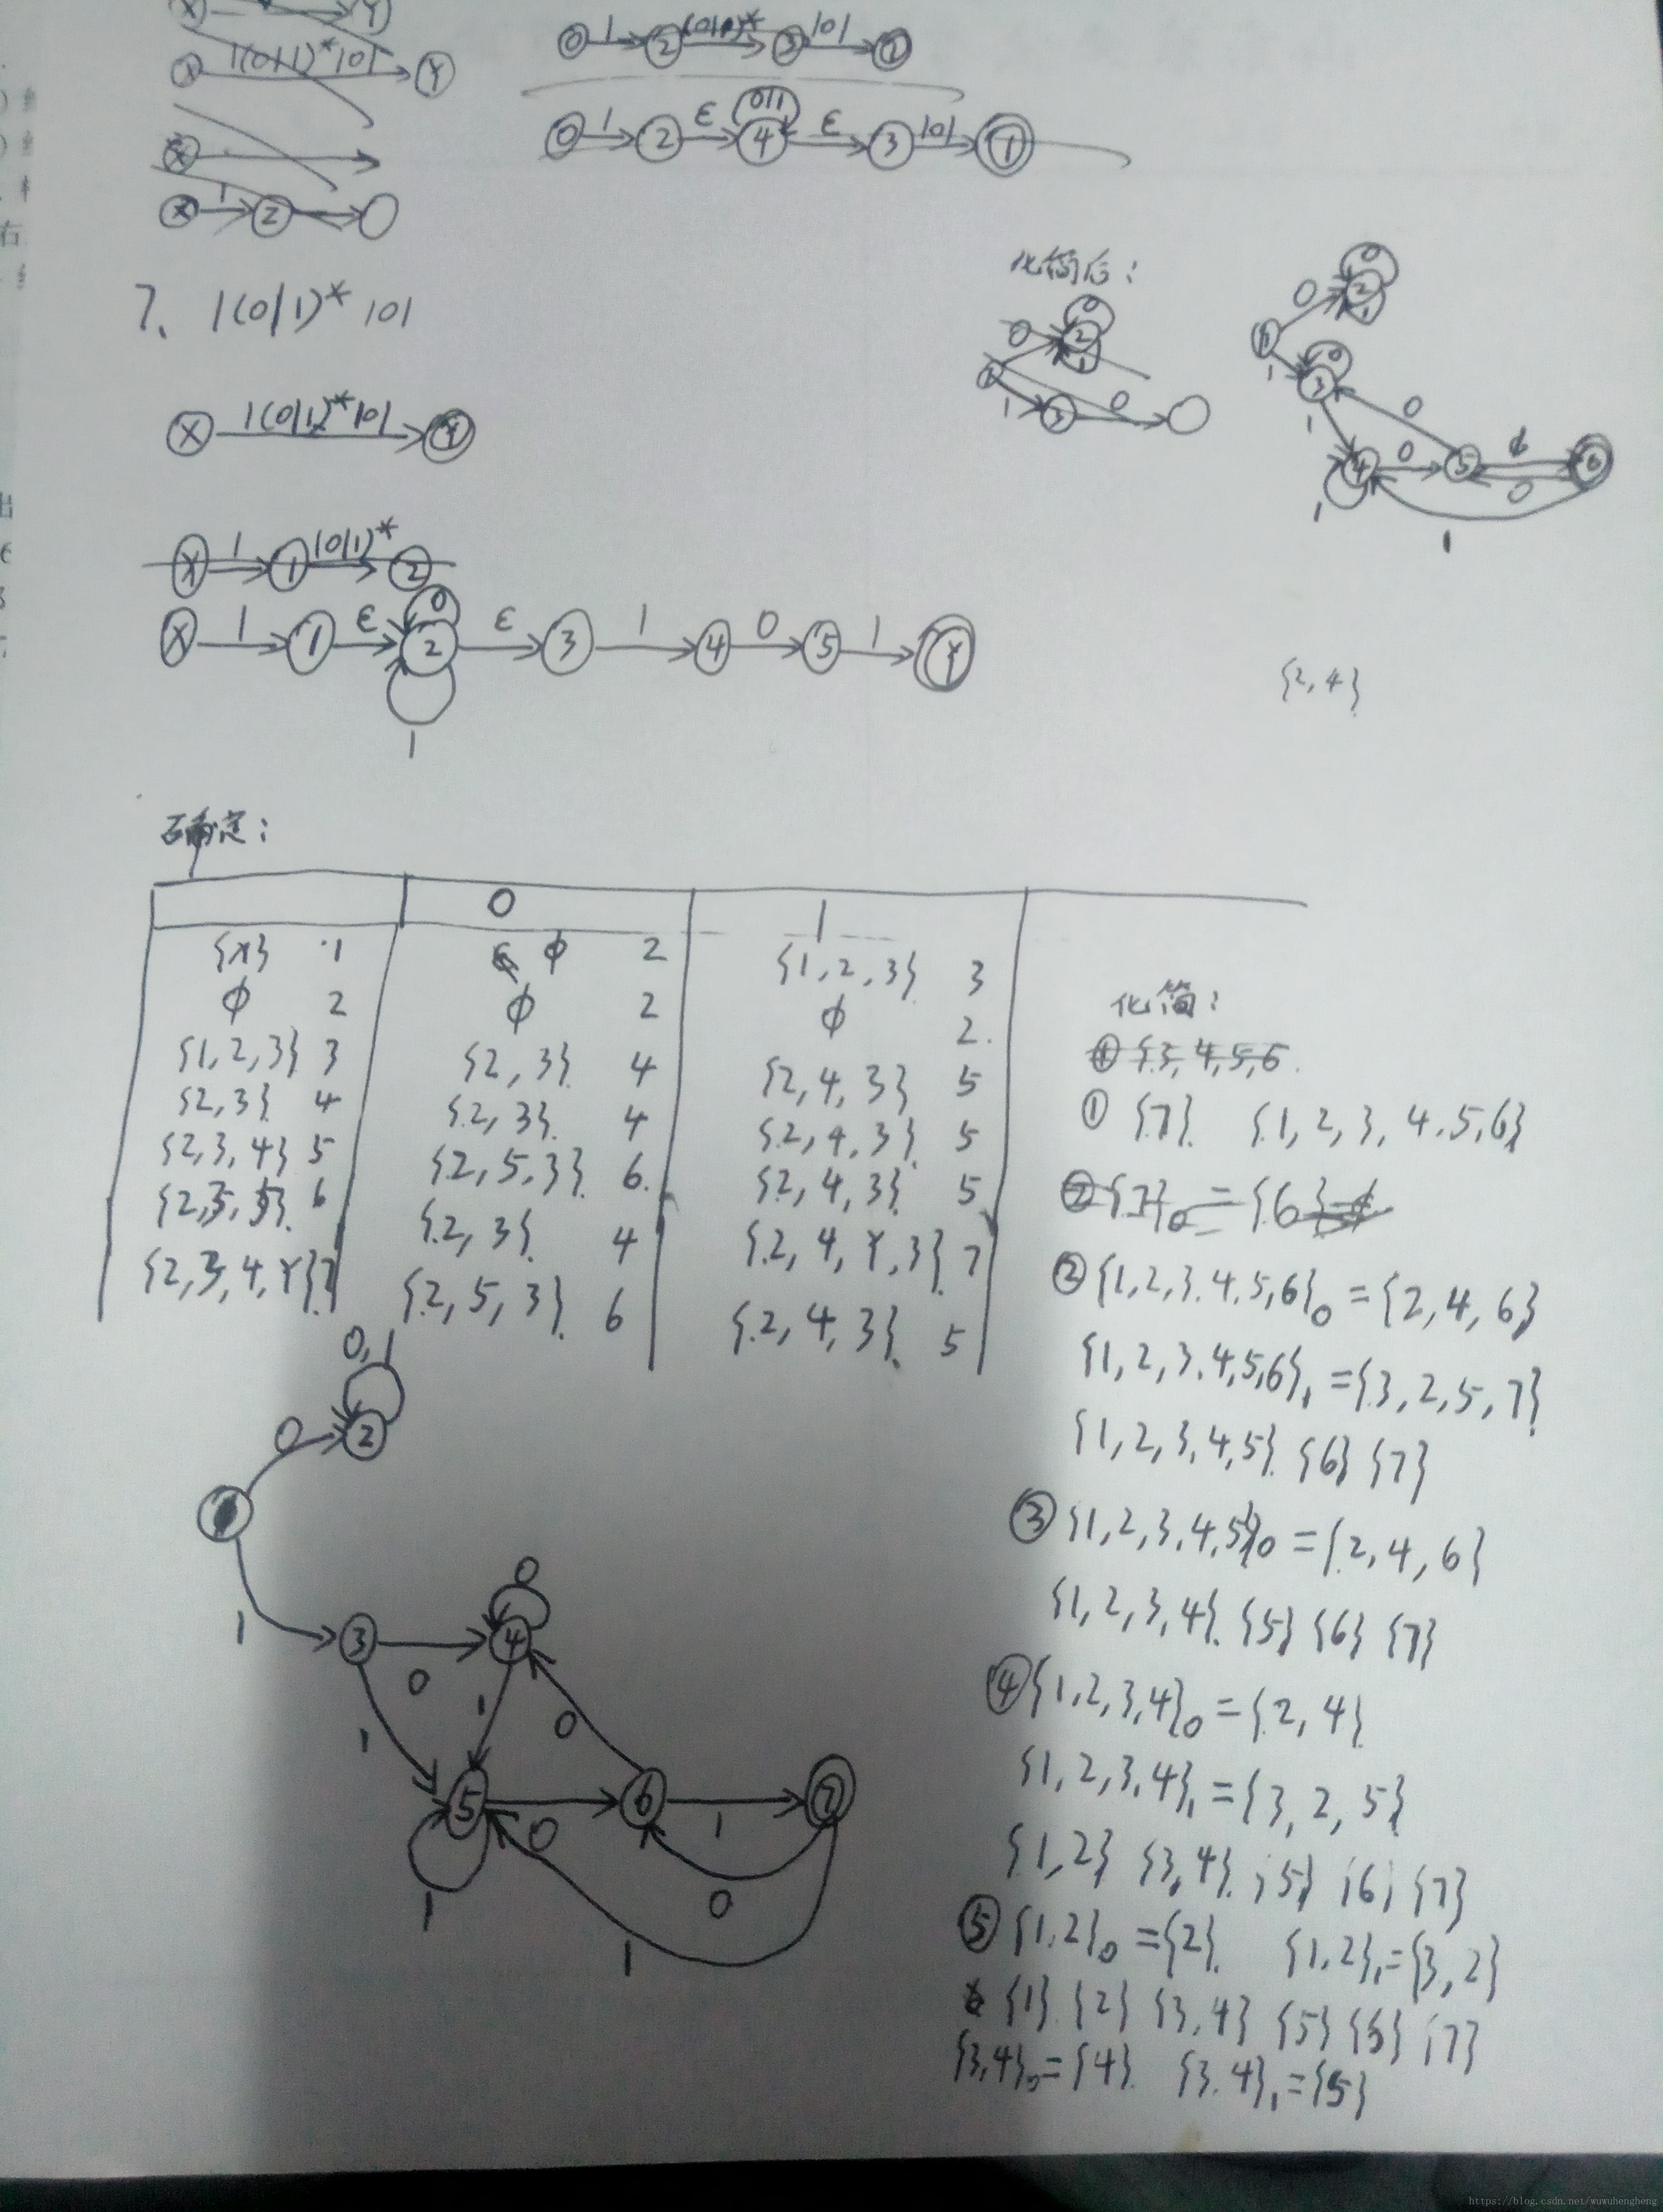 1(0|1)*101
7、 1(0|1)*101
X 1(0|1)*101 Y
X 1 1 (0|1)* 2
X 1 1 ε 2 ε 3 1 4 0 5 1 Y
0
1
0 1 2 (0|1)* 3 101 1
0 1 2 ε 4 ε 3 101 1
0|1
化简后:
{2,4}
确定:
0 1
{X} 1 φ 2 {1,2,3} 3
φ 2 φ 2 φ 2.
{1,2,3} 3 {2,3} 4 {2,4,3} 5
{2,3} 4 {2,3} 4 {2,4,3} 5
{2,3,4} 5 {2,5,3} 6. {2,4,3} 5
{2,3,5} 6 {2,3} 4 {2,4,Y,3} 7
{2,3,4,Y} 7 {2,5,3} 6 {2,4,3} 5
化简:
① {3,4,5,6
① {7} {1,2,3,4,5,6}
② {7}0 = {6}
② {1,2,3,4,5,6}0 = {2,4,6}
{1,2,3,4,5,6}1 = {3,2,5,7}
{1,2,3,4,5} {6} {7}
③ {1,2,3,4,5}0 = {2,4,6}
{1,2,3,4} {5} {6} {7}
④ {1,2,3,4}0 = {2,4}
{1,2,3,4}1 = {3,2,5}
{1,2} {3,4} {5} {6} {7}
⑤ {1,2}0 = {2} {1,2}1 = {3,2}
{1} {2} {3,4} {5} {6} {7}
{3,4}0 = {4} {3,4}1 = {5}
0,1
0 2
1 3 0 4 0
1 1 0
5 0 6 1 7
1 0
1
https://blog.csdn.net/wuwuhengheng